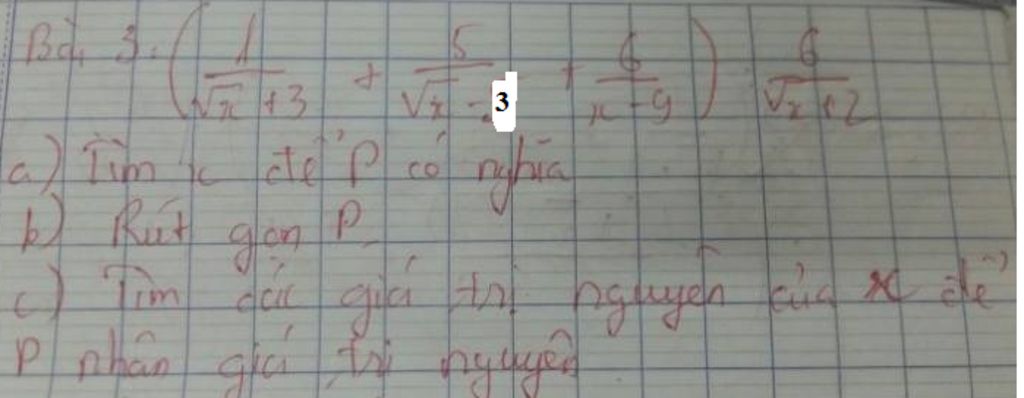 Bài 3: (1/(√x + 3) + 5/(√x - 3) + 6/(x - 9)) : 6/(√x + 2)
a) Tìm x để P có nghĩa
b) Rút gọn P
c) Tìm các giá trị nguyên của x để
P nhận giá trị nguyên